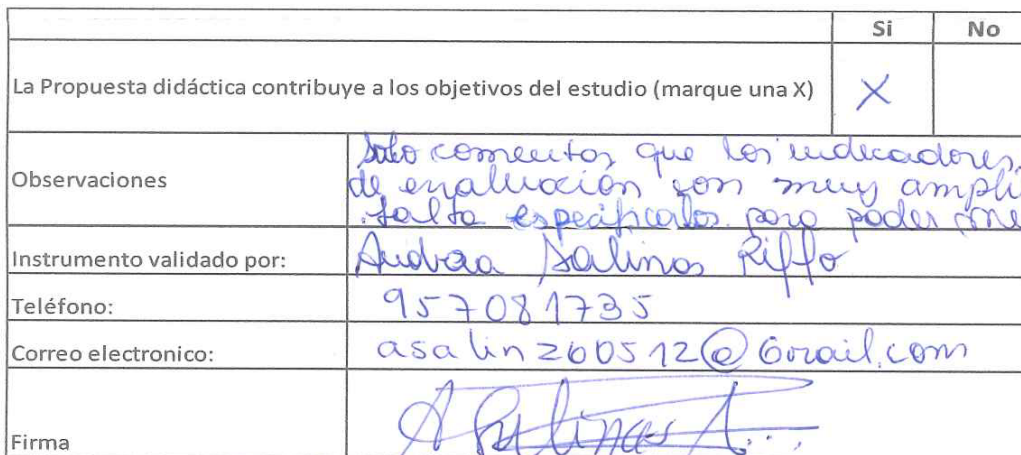 Si No
La Propuesta didáctica contribuye a los objetivos del estudio (marque una X) X
Observaciones
Solo comentos que los indicadores
de evaluación son muy ampli
falta especificarlos para poder me
Instrumento validado por: Andrea Salinas Riffo
Teléfono: 957081735
Correo electronico: asalin260512@Gmail.com
Firma A Salinas R...